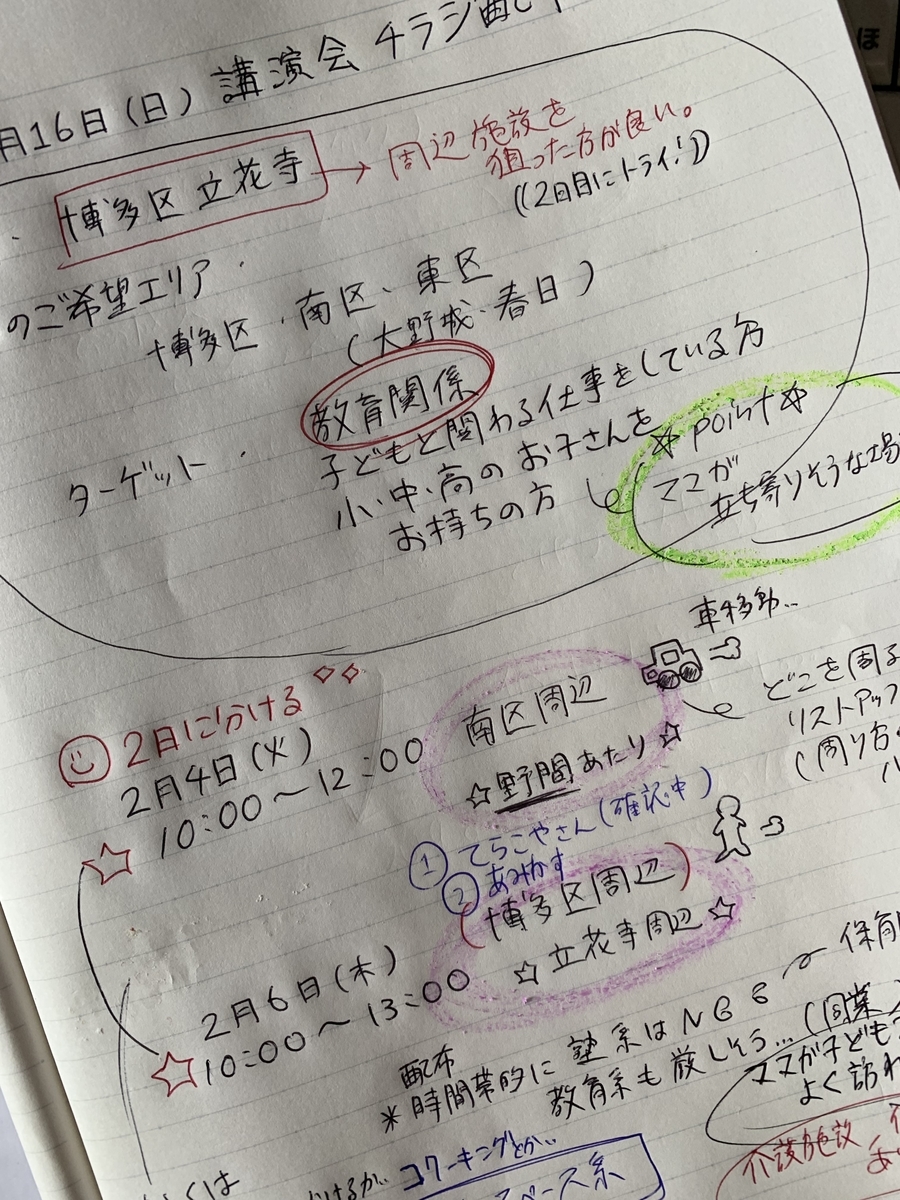 月16日(日) 講演会 チラシ配り
博多区 立花寺 → 周辺施設を
狙った方が良い。
((2回目にトライ!))
のご希望エリア
博多区・南区・東区
(大野城・春日)
教育関係
ターゲット・子どもと関わる仕事をしている方
小・中・高のお子さんを
お持ちの方
☆point☆
ママが
立ち寄りそうな場
車移動..
2日に分ける
2月4日(火)
10:00〜12:00
南区周辺
☆野間あたり☆
どこを周る
リストアップ
(周り方
① てらこやさん(確認中)
② あみかす
(博多区周辺)
☆立花寺周辺☆
2月6日(木)
10:00〜13:00
配布
*時間帯的に 塾系はNG
教育系も厳しそう...(同業
保育
ママが子ども
よく訪れ
介護施設
くは
かけるか、コワーキングとか..
スペース系
ほ